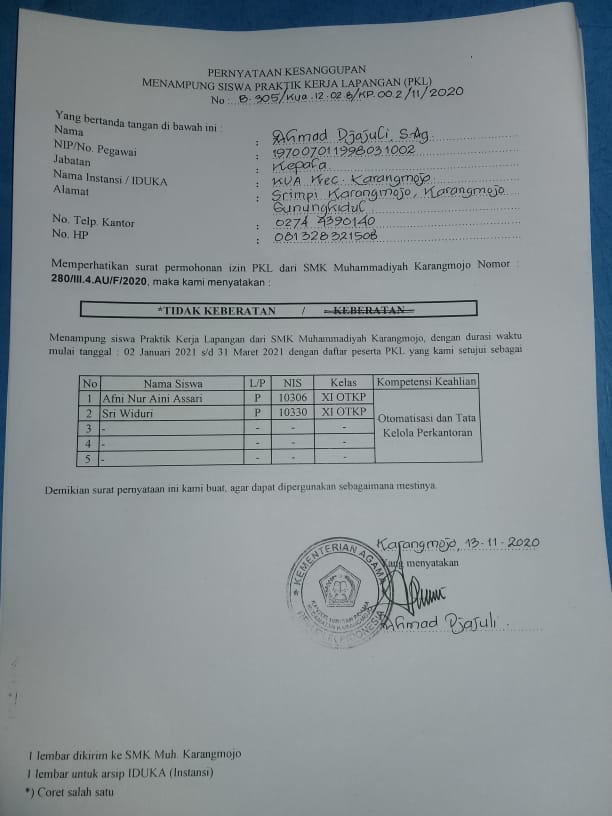 PERNYATAAN KESANGGUPAN
MENAMPUNG SISWA PRAKTIK KERJA LAPANGAN (PKL)
No : B-305/Kua.12.02.8/KP.00.2/11/2020
Yang bertanda tangan di bawah ini :
Nama : Ahmad Djajuli, S.Ag
NIP/No. Pegawai : 197007011998031002
Jabatan : Kepala
Nama Instansi / IDUKA : KUA Kec. Karangmojo
Alamat : Srimpi Karangmojo, Karangmojo
Gunungkidul
No. Telp. Kantor : 0274 4390140
No. HP : 081328321508
Memperhatikan surat permohonan izin PKL dari SMK Muhammadiyah Karangmojo Nomor :
280/III.4.AU/F/2020, maka kami menyatakan :
*TIDAK KEBERATAN / KEBERATAN
Menampung siswa Praktik Kerja Lapangan dari SMK Muhammadiyah Karangmojo, dengan durasi waktu
mulai tanggal : 02 Januari 2021 s/d 31 Maret 2021 dengan daftar peserta PKL yang kami setujui sebagai
No Nama Siswa L/P NIS Kelas Kompetensi Keahlian
1 Afni Nur Aini Assari P 10306 XI OTKP
2 Sri Widuri P 10330 XI OTKP
3 - - - - Otomatisasi dan Tata
4 - - - - Kelola Perkantoran
5 - - - -
Demikian surat pernyataan ini kami buat, agar dapat dipergunakan sebagaimana mestinya.
Karangmojo, 13-11-2020
Yang menyatakan
KEMENTERIAN AGAMA
KANTOR URUSAN AGAMA
KECAMATAN KARANGMOJO
REPUBLIK INDONESIA
Ahmad Djajuli
1 lembar dikirim ke SMK Muh. Karangmojo
1 lembar untuk arsip IDUKA (Instansi)
*) Coret salah satu